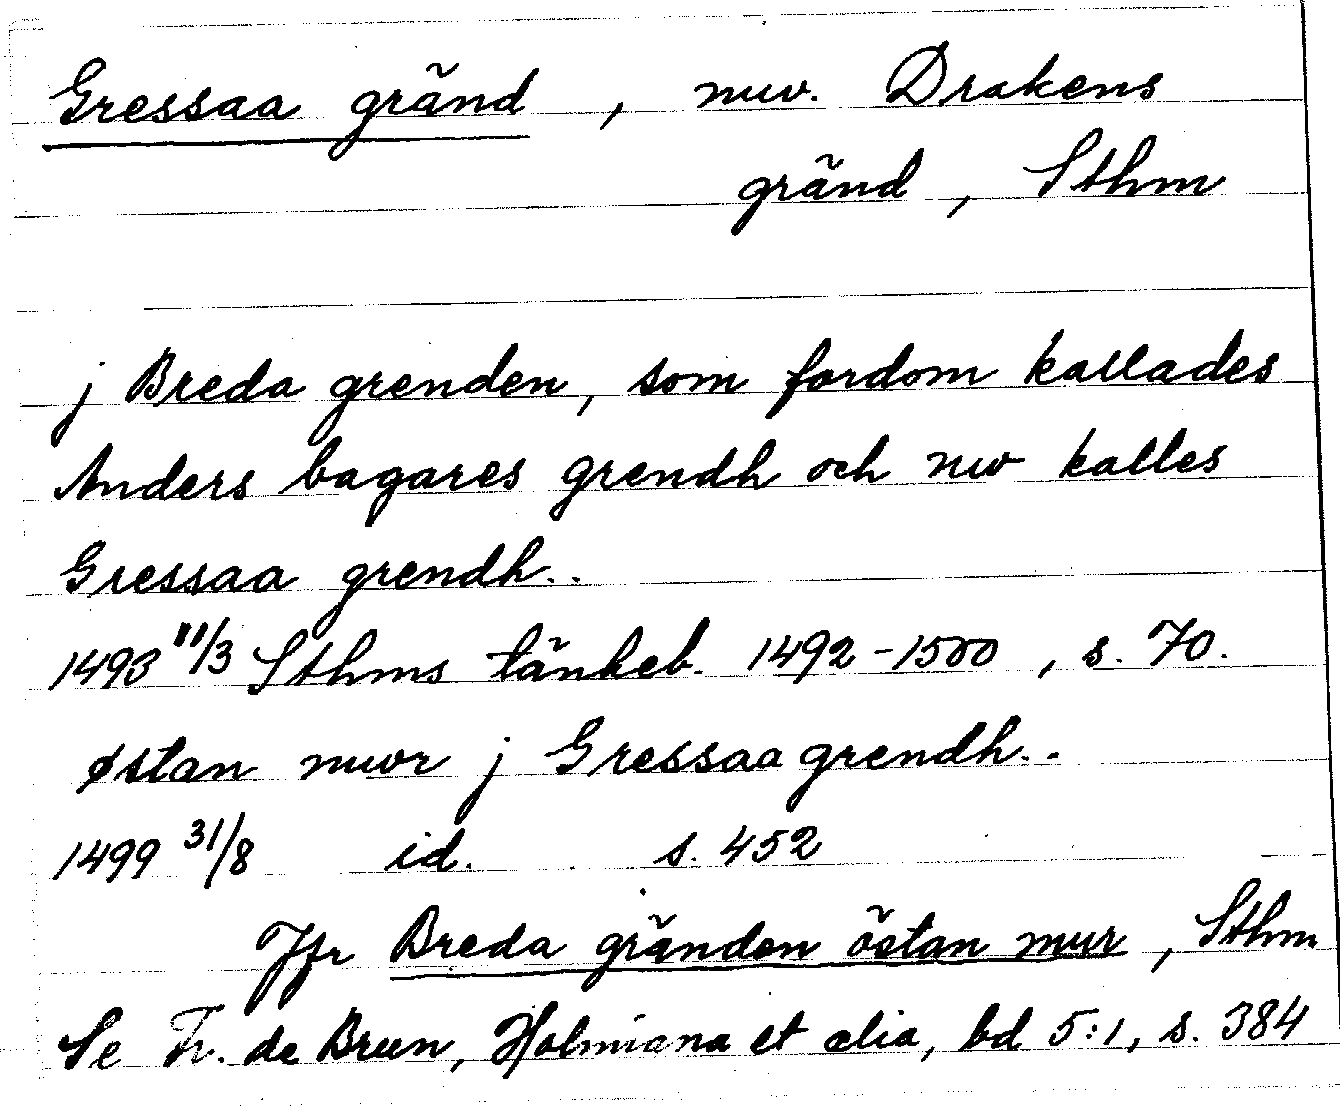 Gressaa gränd, nuv. Drakens
gränd, Sthm
j Breda grenden, som fordom kallades
Anders bagares grendh och nw kalles
Gressaa grendh..
1493 11/3 Sthms tänkeb. 1492-1500, s. 70.
østan mwr j Gressaa grendh..
1499 31/8 id. s. 452
Jfr Breda gränden östan mur, Sthm
Se Fr. de Brun, Holmiana et alia, bd 5:1, s. 384